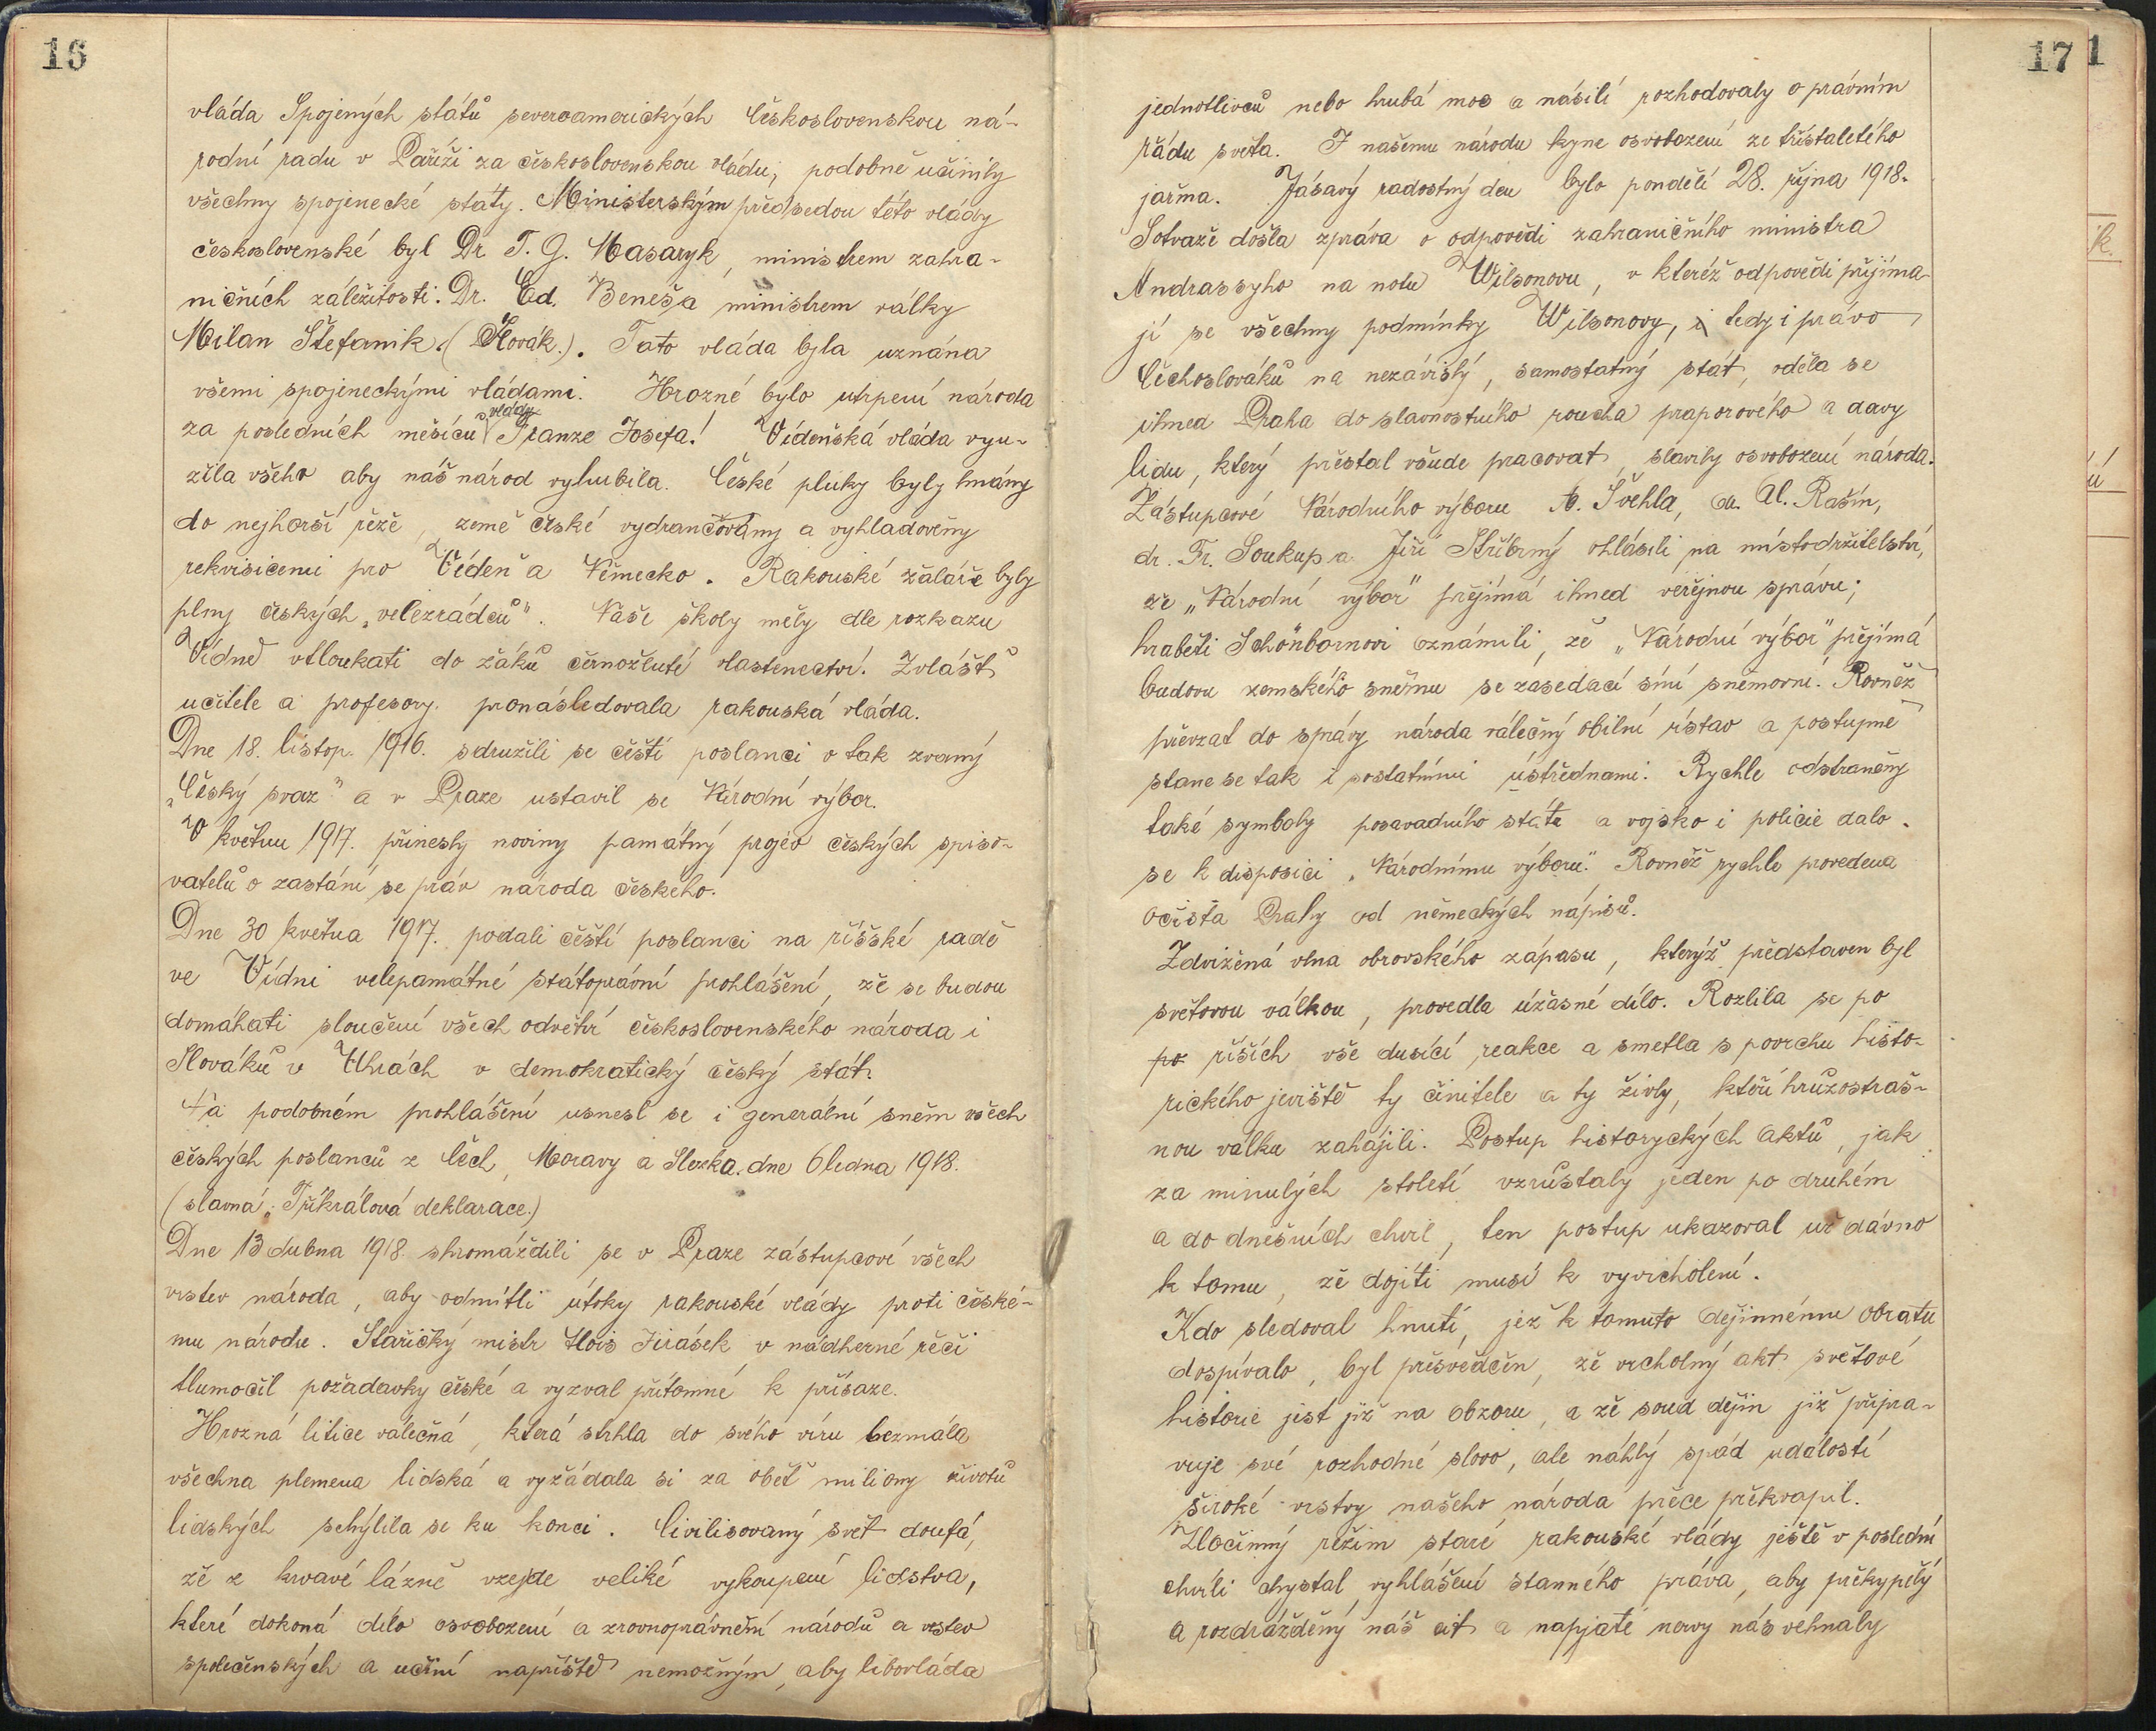 16
vláda Spojených států severoamerických Československou ná-
rodní radu v Paříži za československou vládu, podobně učinily
všechny spojenecké státy. Ministerským předsedou této vlády
československé byl Dr. T. G. Masaryk, ministrem zahra-
ničních záležitostí. Dr. Ed. Beneša ministrem války
Milan Štefanik. (Slovák.). Tato vláda byla uznána
všemi spojeneckými vládami. Hrozné bylo utrpení národa
za posledních měsíců vlády Franze Josefa! Vídeňská vláda vyu-
žila všeho aby náš národ vyhubila. České pluky byly hnány
do nejhorší řeže, země české vydrancovány a vyhladověny
rekvisicemi pro Vídeň a Německo. Rakouské žaláře byly
plny českých „velezrádců". Naše školy měly dle rozkazu
Vídně vtloukati do žáků černožluté vlastenectví. Zvlášť
učitele a profesory pronásledovala rakouská vláda.
Dne 18. listop. 1916. sdružili se čeští poslanci v tak zvaný
„Český svaz" a v Praze ustavil se Národní výbor.
V květnu 1917. přinesly noviny památný projev českých spiso-
vatelů o zastání se práv národa českého.
Dne 30 května 1917. podali čeští poslanci na říšské radě
ve Vídni velepamátné státoprávní prohlášení, že se budou
domáhati sloučení všech odvětví československého národa i
Slováků v Uhrách v demokratický český stát.
Na podobném prohlášení usnesl se i generální sněm všech
českých poslanců z Čech, Moravy a Slezka. dne 6 ledna 1918.
(slavná „Tříkrálová deklarace.)
Dne 13 dubna 1918 shromáždili se v Praze zástupcové všech
vrstev národa, aby odmítli útoky rakouské vlády proti české-
mu národu. Stařičký mistr Alois Jirásek v nádherné řeči
tlumočil požadavky české a vyzval přítomné k přísaze.
Hrozná litice válečná, která strhla do svého víru bezmála
všechna plemena lidská a vyžádala si za oběť miliony životů
lidských schýlila se ku konci. Civilisovaný svět doufá,
že z krvavé lázně vzejde veliké vykoupení lidstva,
které dokoná dílo osvobození a zrovnoprávnění národů a vrstev
společenských a učiní napříště nemožným, aby libovláda
17
jednotlivců nebo hrubá moc a násilí rozhodovaly o právním
řádu světa. I našemu národu kyne osvobození ze třístaletého
jařma. Jásavý radostný den bylo pondělí 28. října 1918.
Sotvaže došla zpráva o odpovědi zahraničního ministra
Andrassyho na notu Wilsonovu, v kteréž odpovědi přijíma-
jí se všechny podmínky Wilsonovy, i tedy i právo
Čechoslováků na nezávislý, samostatný stát, oděla se
ihned Praha do slavnostního roucha praporového a davy
lidu, který přestal všude pracovat, slavily osvobození národa.
Zástupcové Národního výboru A. Švehla, dr. Al. Rašín,
dr. Fr. Soukup a Jiří Stříbrný ohlásili na místodržitelství,
že „Národní výbor" přejímá ihned veřejnou správu;
hraběti Schönbornovi oznámili, že „Národní výbor" přejímá
budovu zemského sněmu se zasedací síní sněmovní. Rovněž
převzat do správy národa válečný obilní ústav a postupně
stane se tak i s ostatními ústřednami. Rychle odstraněny
také symboly posavadního státu a vojsko i policie dalo
se k disposici „Národnímu výboru." Rovněž rychle provedena
očista Prahy od německých nápisů.
Zdvižená vlna obrovského zápasu, kterýž představen byl
světovou válkou, provedla úžasné dílo. Rozlila se po
po říších vše dusící reakce a smetla s povrchu histo-
rického jeviště ty činitele a ty živly, kteří hrůzostraš-
nou válku zahájili. Postup historyckých aktů, jak
za minulých století vzrůstaly jeden po druhém
a do dnešních chvil, ten postup ukazoval už dávno
k tomu, že dojíti musí k vyvrcholení.
Kdo sledoval hnutí, jež k tomuto dějinnému obratu
dospívalo, byl přesvědčen, že vrcholný akt světové
historie jest již na obzoru, a že soud dějin již připra-
vuje své rozhodné slovo, ale náhlý spád událostí
široké vrstvy našeho národa přece překvapil.
Zločinný režim staré rakouské vlády ještě v poslední
chvíli chystal vyhlášení stanného práva, aby překypělý
a rozdrážděný náš cit a napjaté nervy nás vehnaly